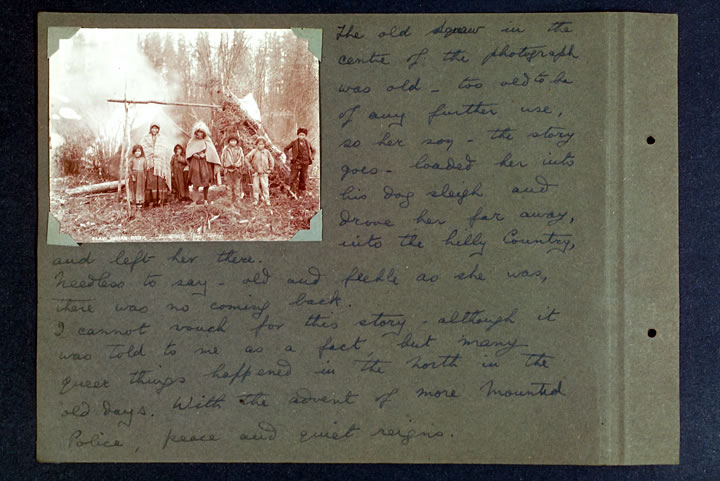 The old squaw in the
centre of the photograph
was old - too old to be
of any further use,
so her son - the story
goes - loaded her into
his dog sleigh and
drove her far away,
into the hilly Country,
and left her there.
Needless to say - old and feeble as she was,
there was no coming back.
I cannot vouch for this story - although it
was told to me as a fact, but many
queer things happened in the north in the
old days. With the advent of more Mounted
Police, peace and quiet reigns.